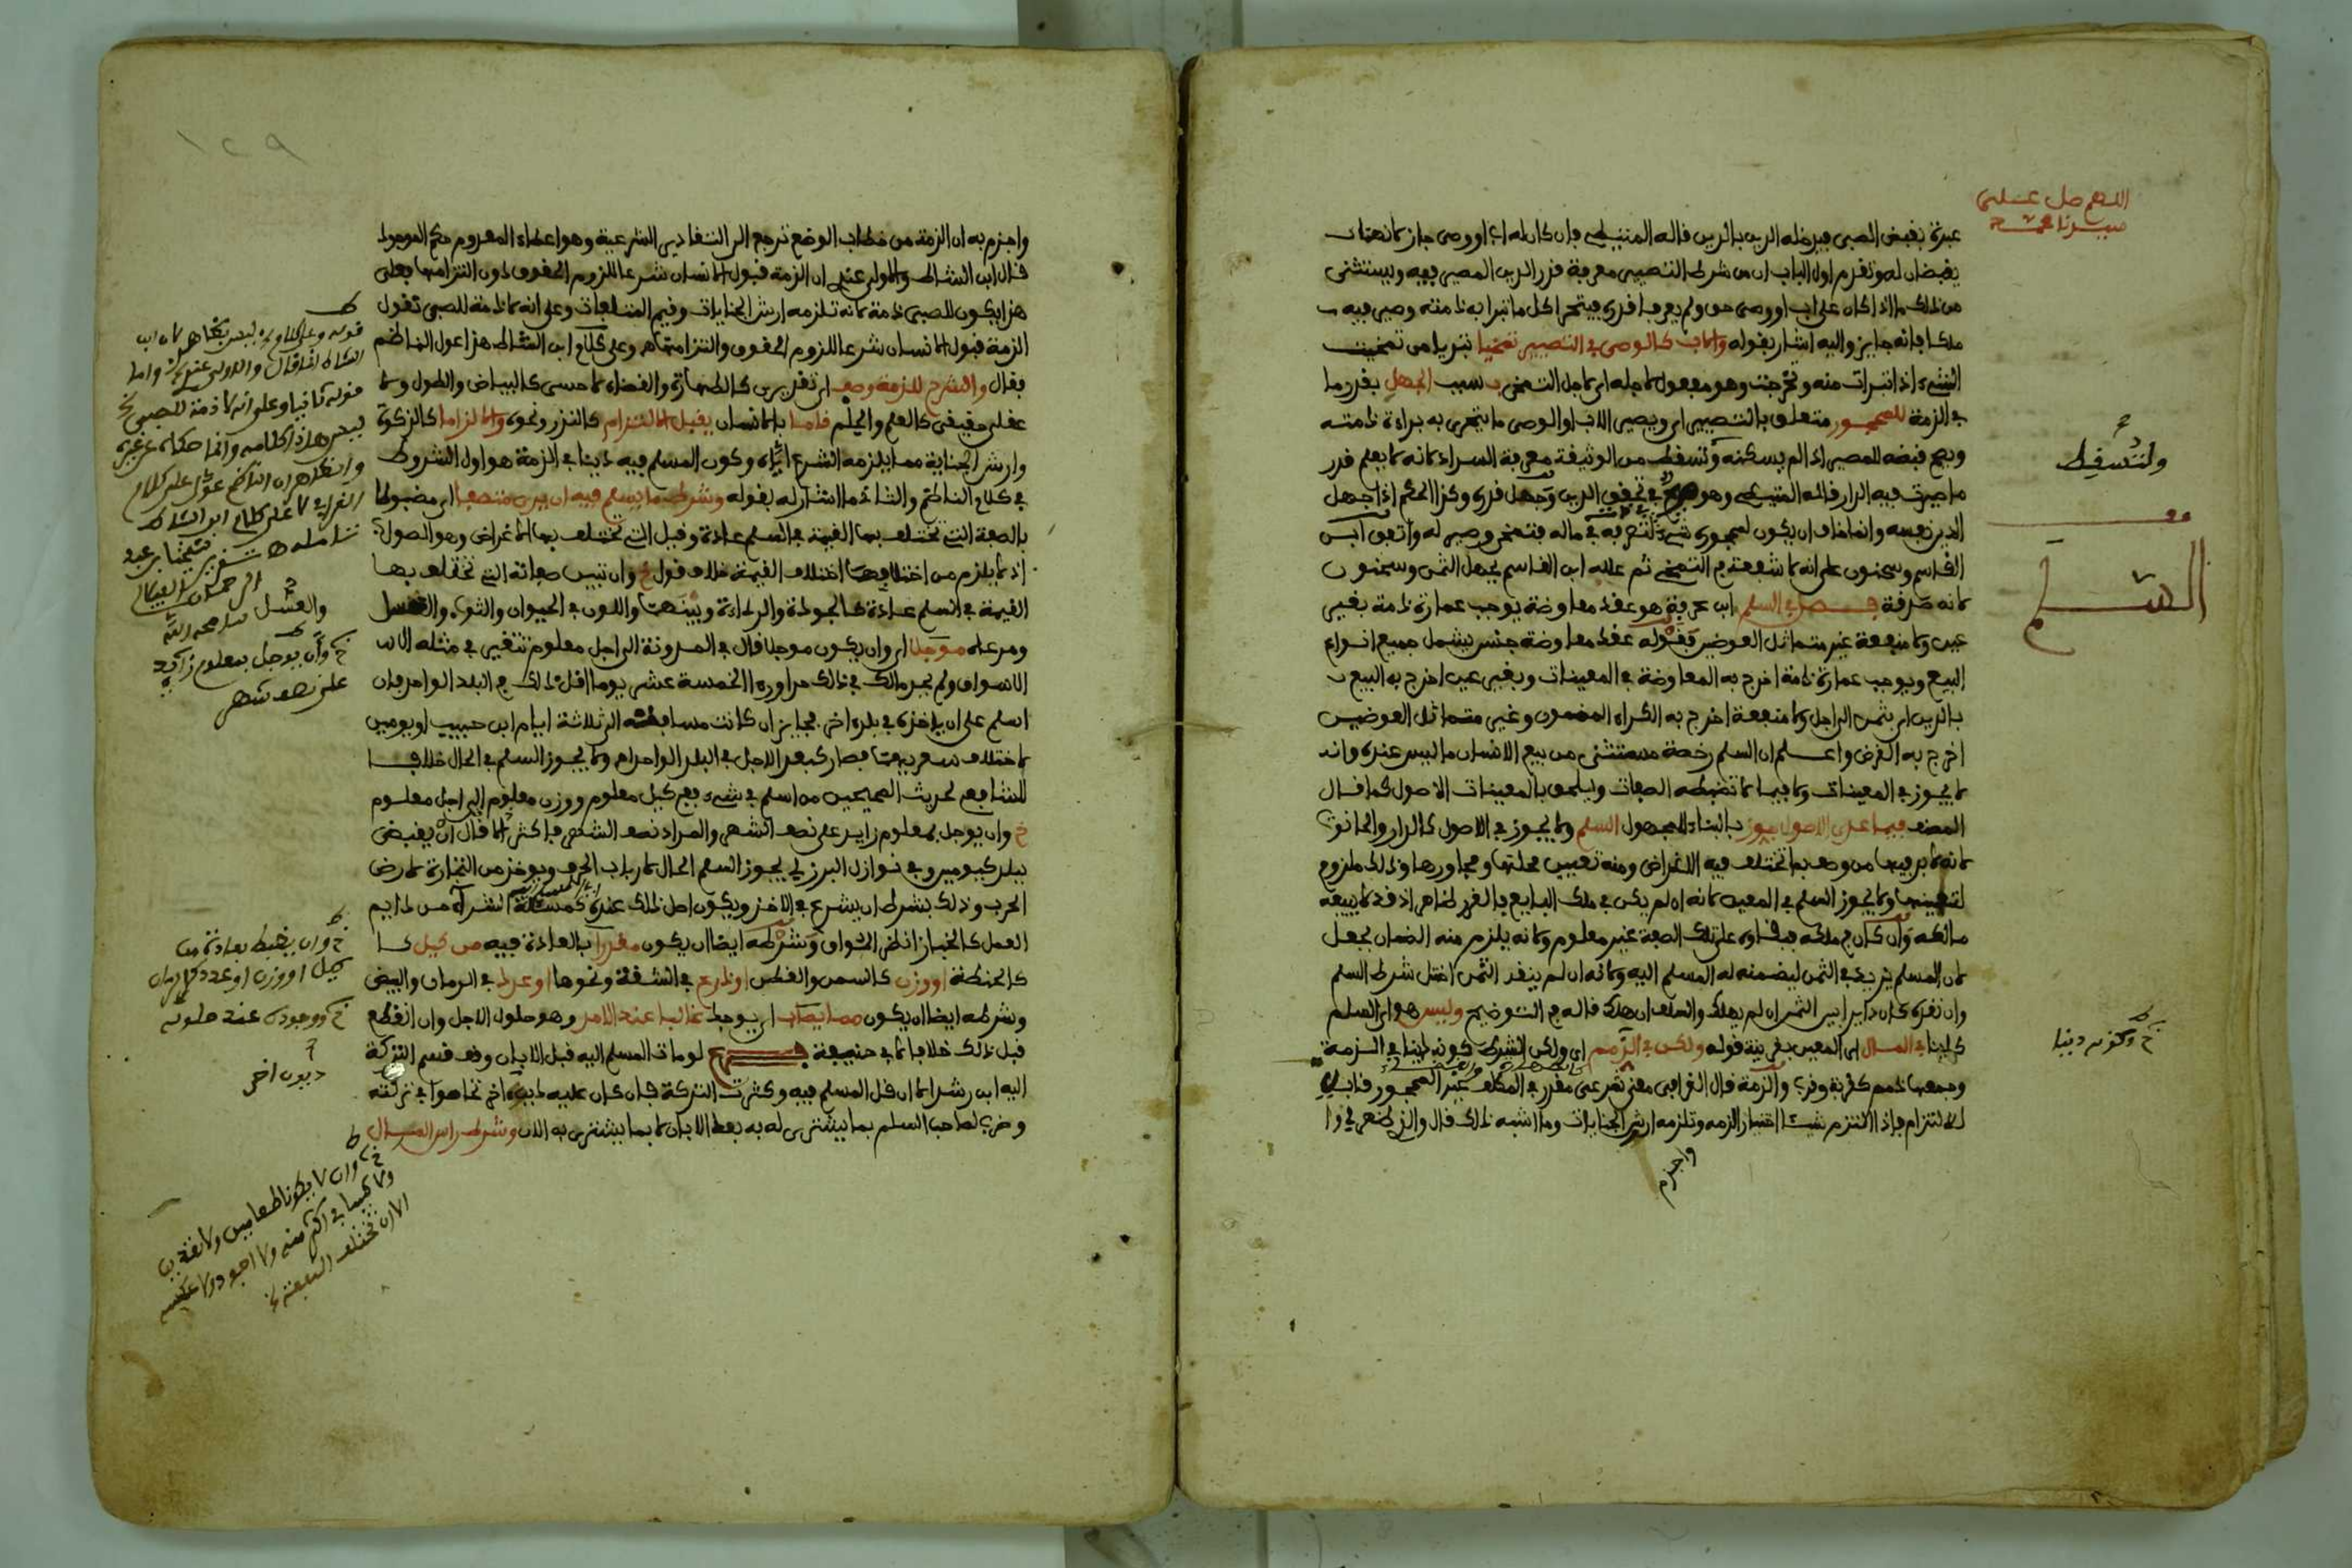 اللهم صل على
سيدنا محمد
عبرة بقبض الصبي فيدخله الدين بالدين قاله المتيطي فإن كان له اب او وصي جاز لانهما
يقبضان له وتقدم اول الباب ان من شرط التصيير معرفة قدر الدين المصير فيه ويستثنى
من ذلك ما اذا كان على اب او وصي حق ولم يعرف قدره فيتحرا كل ما تبرا به ذمته وصير فيه
ملكا فانه جايز واليه اشار بقوله والاب كالوصي في التصيير تمخيا تنزيلا من تمخيت
الشيء اذا تبرات منه وتحرجت وهو مفعول لاجله اي لاجل التمخي بسبب الجهل بقدر ما
في الذمة للمحجور متعلق بالتصيير اي ويصير الاب او الوصي ما يتحرى به براءة ذمته
ويصح قبضه للمصير اذا لم يسكنه ولتسقط من الوثيقة معرفة السداد لانه لا يعلم قدر
ما صيرت فيه الدار قاله المتيطي وهو في تحقق الدين وجهل قدره وكذا الحكم اذا جهل
الدين نفسه وانما خاف ان يكون لمحجوره شيء في ماله فتمخى وصير له واتفق ابن
القاسم وسحنون على انه لا شفعة في التمخي ثم علله ابن القاسم بجهل الثمن وسحنون
لانه صدقة فصل في السلم ابن عرفة هو عقد معاوضة يوجب عمارة ذمة بغير
عين ولا منفعة غير متماثل العوضين فقوله عقد معاوضة جنس يشمل جميع انواع
البيع ويوجب عمارة ذمة اخرج به المعاوضة في المعينات وبغير عين اخرج به البيع
بالدين اي بثمن الى اجل ولا منفعة اخرج به الكراء المضمون وغير متماثل العوضين
اخرج به القرض واعلم ان السلم رخصة مستثنى من بيع الانسان ما ليس عنده وانه
لا يجوز في المعينات ولا فيما لا تضبطه الصفات ويلحق بالمعينات الاصول كما قال
المصنف فيما عدى الاصول جوز بالبناء للمجهول السلم ولا يجوز في الاصول كالدار والحانوت
لانه لا بد فيها من وصف ما تختلف فيه الاغراض ومنه تعيين محلتها ومجاورها وذلك ملزوم
لتعيينها ولا يجوز السلم في المعين لانه ان لم يكن في ملك البايع فالغرر ظاهر اذ قد لا يبيعه
مالكه وان كان في ملكه فبقاؤه على تلك الصفة غير معلوم ولانه يلزم منه الضمان بجعل
لان المسلم يزيد في الثمن ليضمنه له المسلم اليه ولانه ان لم ينقد الثمن اختل شرط السلم
وان نقده كان دايرا بين الثمن ان لم يهلك والسلف ان هلك قاله في التوضيح وليس هو اي السلم
كاينا في المال اي المعين بقرينة قوله ولكن في الذمم اي ولكن الشرط كونه دينا في الذمة
وجمعها ذمم كقربة وقرب والذمة قال القرافي معنى شرعي مقدر في المكلف غير المحجور قابل
للالتزام فإذا التزم شيئا اختيارا لزمه وتلزمه ارش الجنايات وما اشبه ذلك قال والذي ظهر لي وا
واجزم
ولتسقط
قف
السلم
خ وكونه دينا
١٢٩
واجزم به ان الذمة من خطاب الوضع ترجع الى التقادير الشرعية وهو اعطاء المعدوم حكم الموجود
قال ابن الشاط والاولى عندي ان الذمة قبول الانسان شرعا للزوم الحقوق دون التزامها فعلى
هذا يكون للصبي ذمة لانه تلزمه ارش الجنايات وقيم المتلفات وعلى انه لا ذمة للصبي نقول
الذمة قبول الانسان شرعا للزوم الحقوق والتزامها وعلى كلام ابن الشاط هذا عول الناظم
فقال والشرح للذمة وصف اي تقديري كالطهارة والقضاء لا حسي كالبياض والطول ولا
عقلي حقيقي كالعلم والحلم قاما بالانسان يقبل الالتزام كالنذر ونحوه والالزاما كالزكاة
وارش الجناية مما يلزمه الشرع اياه وكون المسلم فيه دينا في الذمة هو اول الشروط
في كلام الناظم والثاني ما اشار له بقوله وشرط ما يسلم فيه ان يرى متصفا اي مضبوطا
بالصفة التي تختلف بها القيمة في السلم عادة وقيل التي تختلف بها الاغراض وهو الصواب
اذ لا يلزم من اختلافها اختلاف القيمة خلاف قول خ وان تبين صفاته التي تختلف بها
القيمة في السلم عادة كالجودة والرداءة وبينهما واللون في الحيوان والثوب والعسل
ومرعاه موجلا اي وان يكون موجلا قال في المدونة الى اجل معلوم تتغير في مثله الا
الاسواق ولم يحد مالك في ذلك حدا ورءا الخمسة عشر يوما اقل ذلك في البلد الواحد فإن
اسلم على ان ياخذه في بلد اخر فجايز ان كانت مسافته الى ثلاثة ايام ابن حبيب او يومين
لاختلاف سعريهما فصار كبعد الاجل في البلد الواحد ولا يجوز السلم في الحال خلافا
للشافعي لحديث الصحيحين من اسلم في شيء ففي كيل معلوم ووزن معلوم الى اجل معلوم
خ وان يوجل بمعلوم زايد على نصف الشهر والمراد نصف الشهر فاكثر الا قال ان يقبض
ببلد كيومين وفي نوازل البرزلي يجوز السلم الحال لارباب الحرف ويوخذ من التجارة لارض
الحرب وذلك بشرط ان يشرع في الاخذ ويكون اصل ذلك عنده كمسئلة الشراء من دايم
العمل كالخباز انظر المواق وشرطه ايضا ان يكون مقدرا بالعادة فيه من كيل
كالحنطة او وزن كالسمن والقطن او ذرع في الشقة ونحوها او عدد في الرمان والبيض
وشرطه ايضا ان يكون مما يصاب اي يوجد غالبا عند الامد وهو حلول الاجل وان انقطع
قبل ذلك خلافا لابي حنيفة فرع لو مات المسلم اليه قبل الابان وقف قسم التركة
اليه ابن رشد الا ان قل المسلم فيه وكثرت التركة فإن كان عليه ديون اخر تحاصوا في تركته
وضرب لصاحب السلم بما يشترى له به بعد الابان لا بما يشترى به الان وشرط راس المال
قوله وعلى كلام ليس بظاهر لان ابن
الشاط انما قال والاولى عندي واما
قوله ثانيا وعلى انه لا ذمة للصبي
ليس هذا كلامه وانما حكاه عن غيره
والظاهر ان الناظم عول على كلام
القرافي لا على كلام ابن الشاط
تامله
خ وان يوجل بمعلوم زايد
على نصف شهر
خ وان يضبط بعادته من
كيل او وزن او عدد كالرمان
خ ووجوده عند حلوله
ديون اخر
خ وان لا يكونا طعامين ولا نقدين
ولا شيئا في اكثر منه ولا اجود ولا عكسه
الا ان تختلف المنفعة